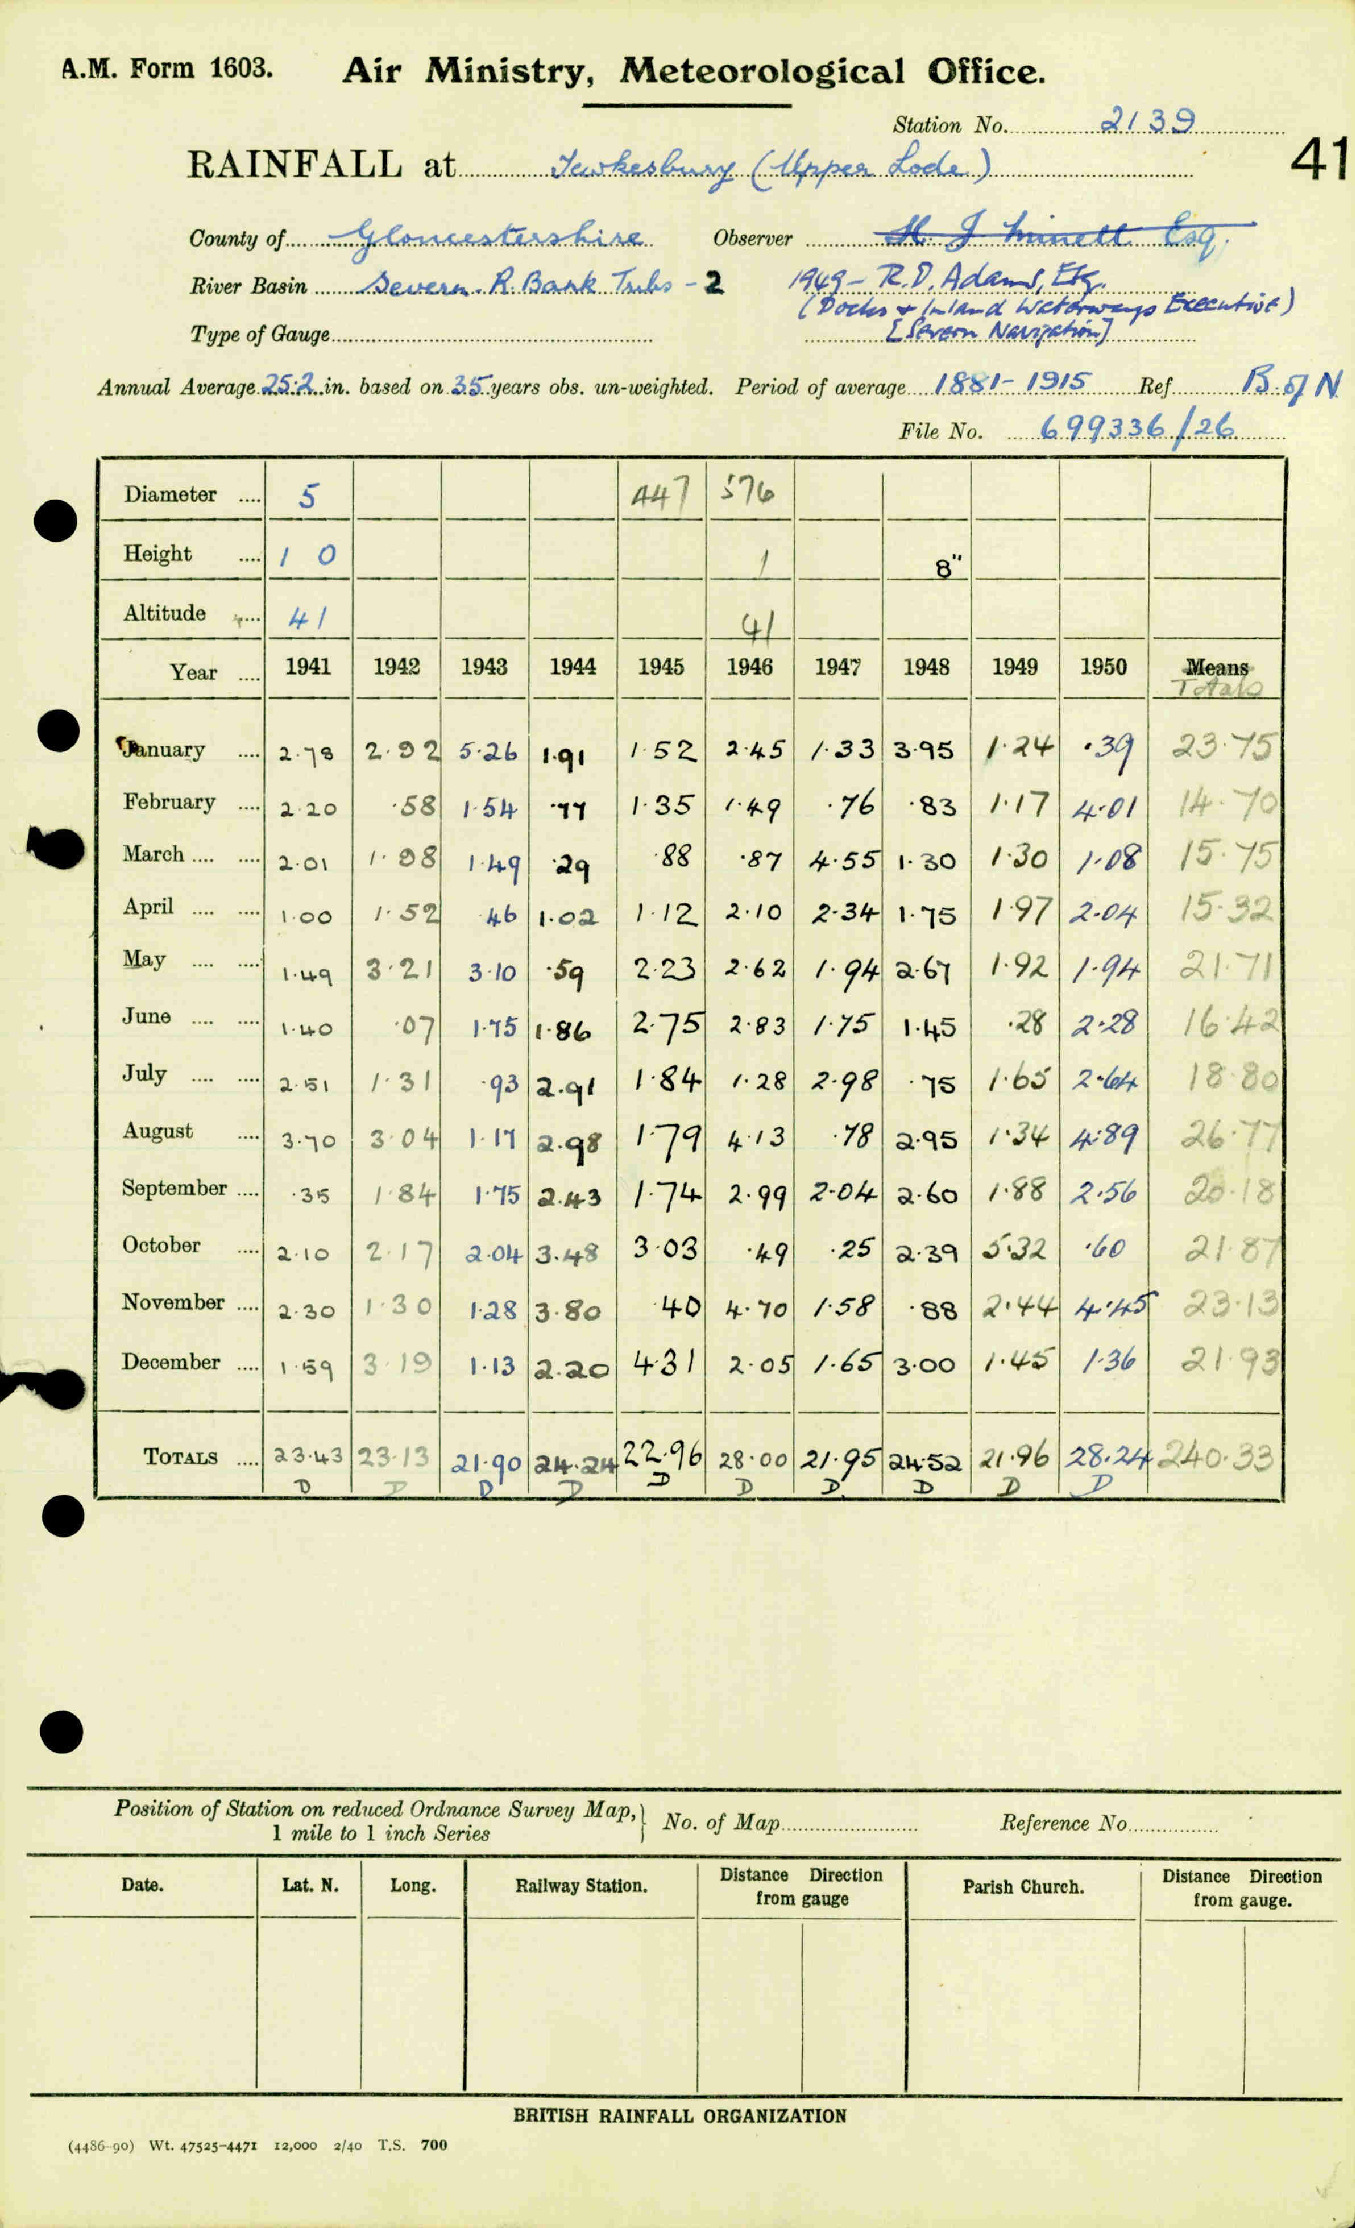 A.M. Form 1603. Air Ministry, Meteorological Office.
Station No. 2139
41
RAINFALL at Tewkesbury (Upper Lode)
County of Gloucestershire Observer H. J Minett Esq.
River Basin Severn. R. Bank Tribs - 2 1949 - R.D. Adams, Esq.
(Docks & Inland Waterways Executive)
Type of Gauge [Severn Navigation]
Annual Average 25.2 in. based on 35 years obs. un-weighted. Period of average 1881-1915 Ref. B. of N
File No. 699336/26
Diameter 5 447 576
Height 1 0 1 8"
Altitude 41 41
Year 1941 1942 1943 1944 1945 1946 1947 1948 1949 1950 Means
Totals
January 2.78 2.92 5.26 1.91 1.52 2.45 1.33 3.95 1.24 .39 23.75
February 2.20 .58 1.54 .77 1.35 1.49 .76 .83 1.17 4.01 14.70
March 2.01 1.98 1.49 .29 .88 .87 4.55 1.30 1.30 1.08 15.75
April 1.00 1.52 .46 1.02 1.12 2.10 2.34 1.75 1.97 2.04 15.32
May 1.49 3.21 3.10 .59 2.23 2.62 1.94 2.67 1.92 1.94 21.71
June 1.40 .07 1.75 1.86 2.75 2.83 1.75 1.45 .28 2.28 16.42
July 2.51 1.31 .93 2.91 1.84 1.28 2.98 .75 1.65 2.64 18.80
August 3.70 3.04 1.17 2.98 1.79 4.13 .78 2.95 1.34 4.89 26.77
September .35 1.84 1.75 2.43 1.74 2.99 2.04 2.60 1.88 2.56 20.18
October 2.10 2.17 2.04 3.48 3.03 .49 .25 2.39 5.32 .60 21.87
November 2.30 1.30 1.28 3.80 .40 4.70 1.58 .88 2.44 4.45 23.13
December 1.59 3.19 1.13 2.20 4.31 2.05 1.65 3.00 1.45 1.36 21.93
TOTALS 23.43 23.13 21.90 24.24 22.96 28.00 21.95 24.52 21.96 28.24 240.33
D D D D D D D D D D
Position of Station on reduced Ordnance Survey Map, No. of Map Reference No.
1 mile to 1 inch Series
Date. Lat. N. Long. Railway Station. Distance Direction from gauge Parish Church. Distance Direction from gauge.
BRITISH RAINFALL ORGANIZATION
(4486-90) Wt. 47525-4471 12,000 2/40 T.S. 700